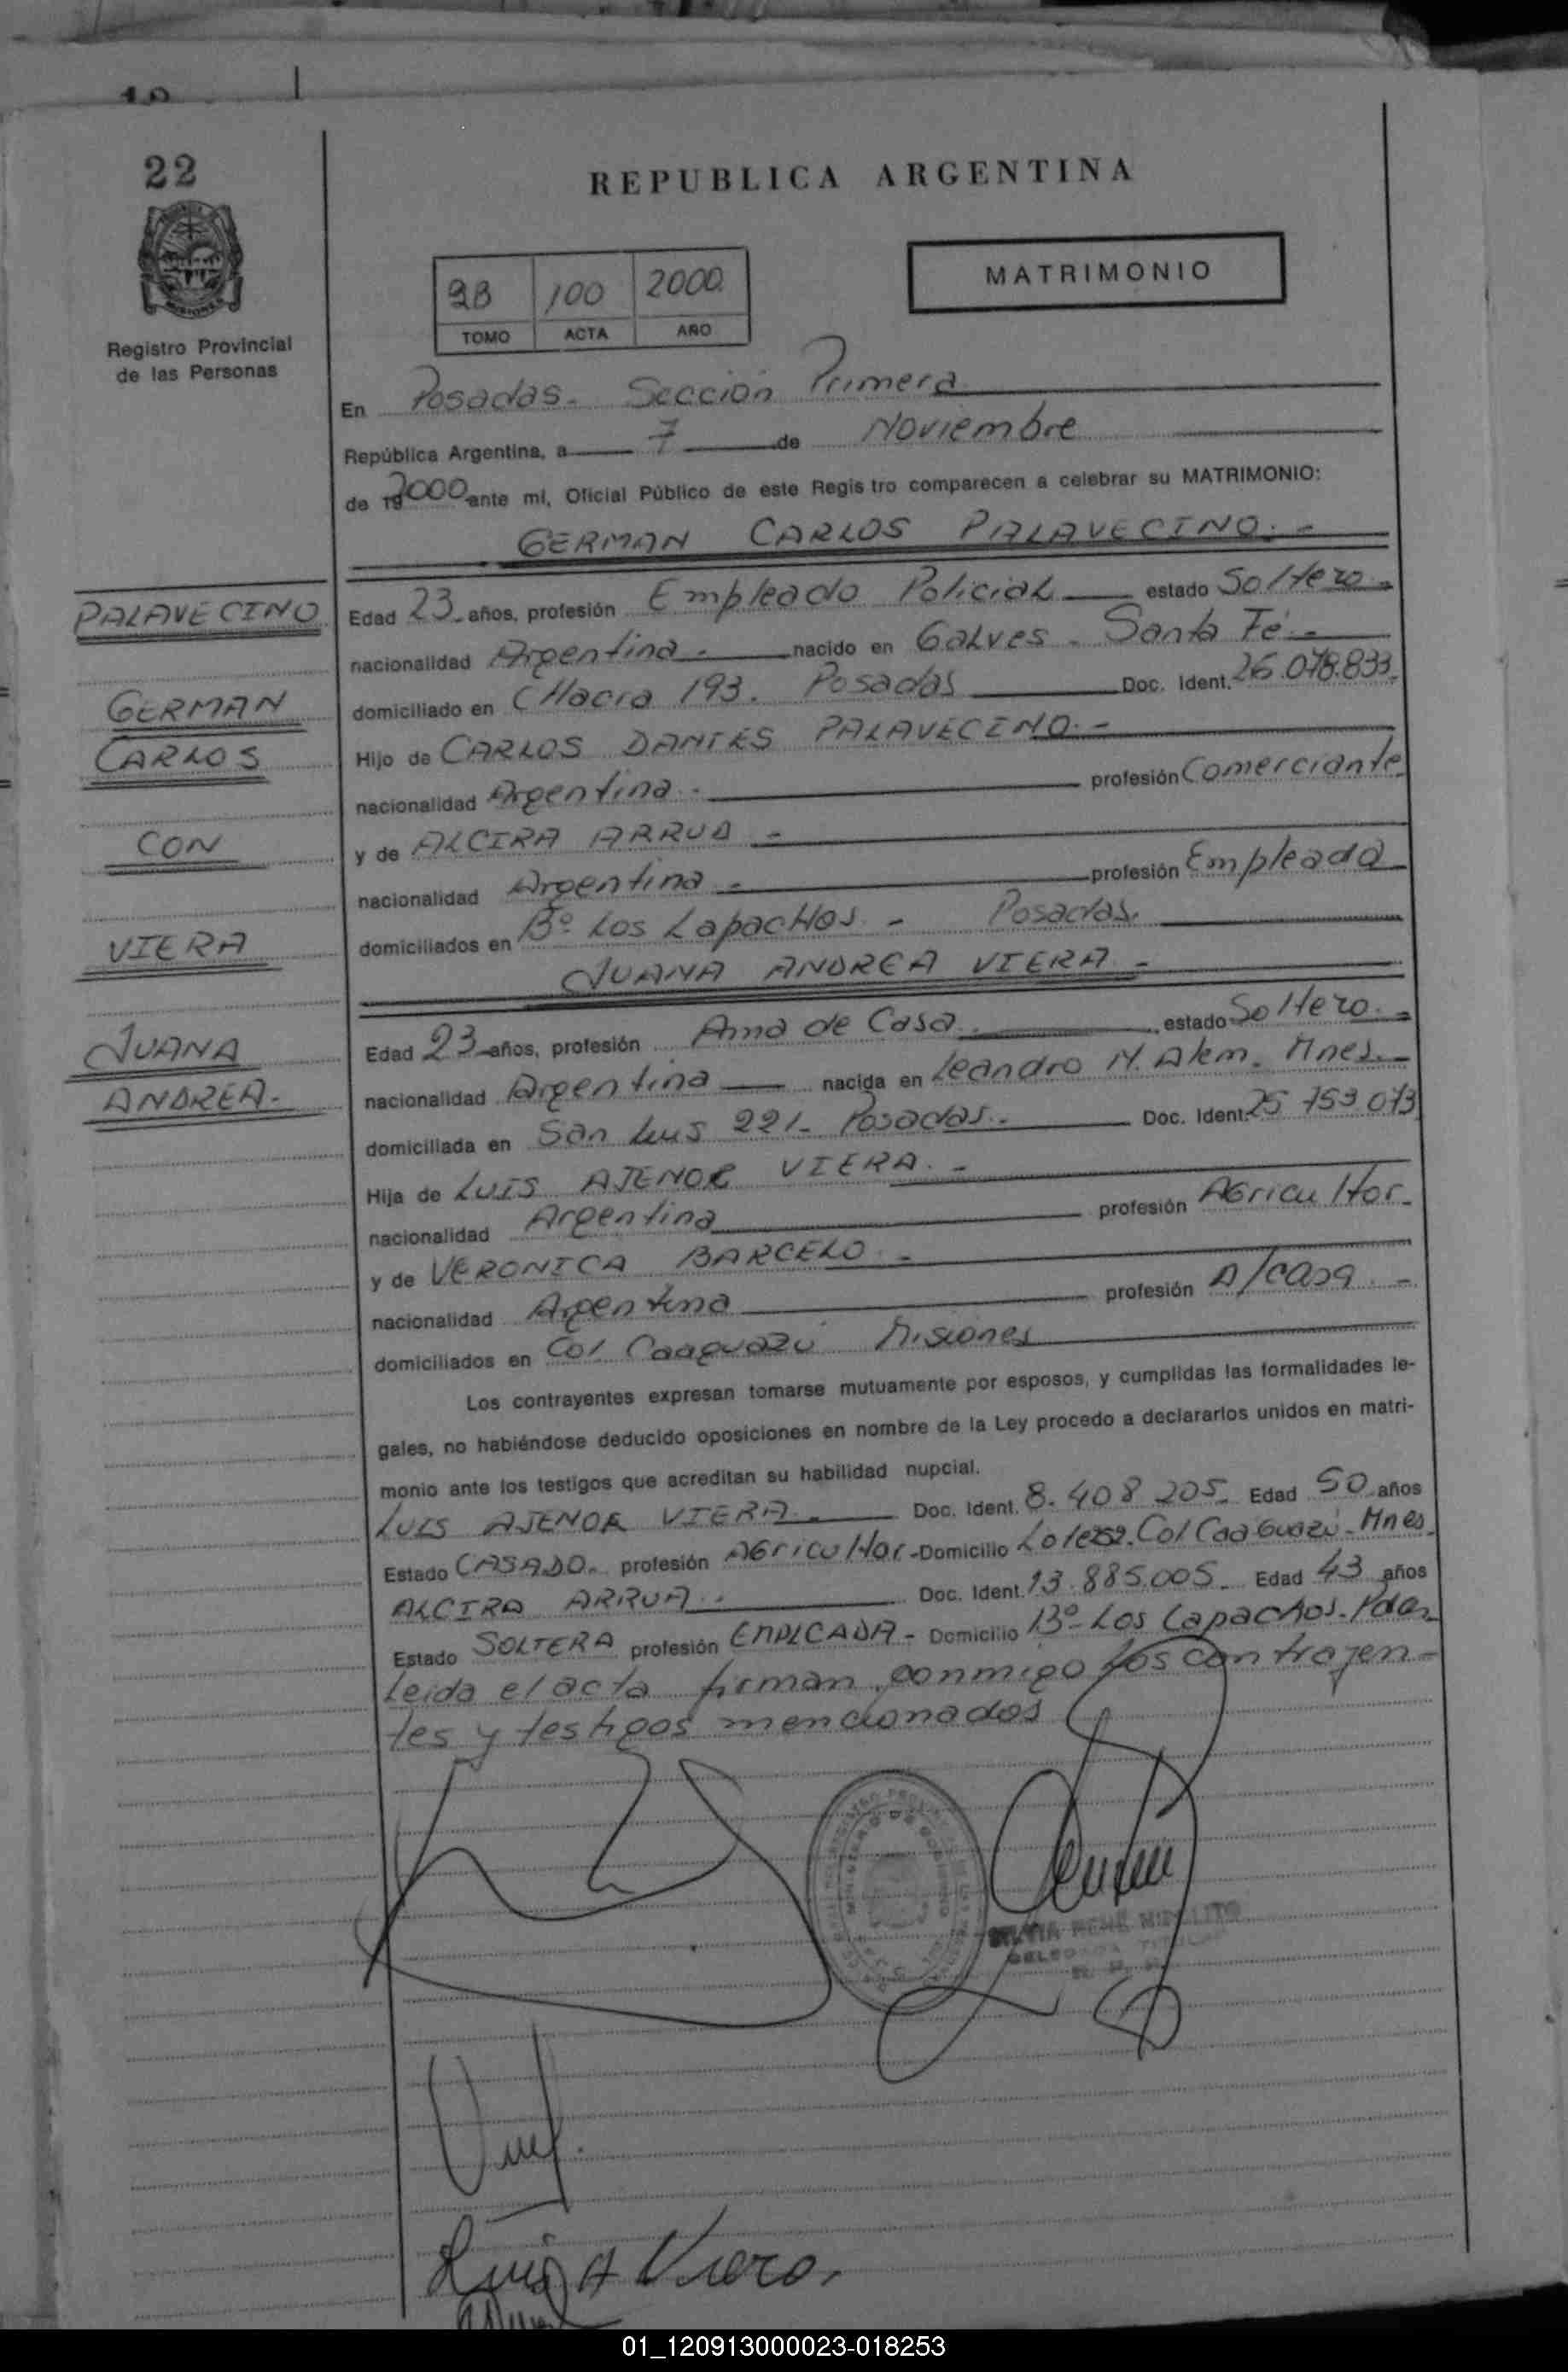 22
REPUBLICA ARGENTINA
MATRIMONIO
100 2000
TOMO ACTA AÑO
Registro Provincial
de las Personas
En Posadas. Sección Primera
República Argentina, a 7 de Noviembre
de 192000 ante mí, Oficial Público de este Regis tro comparecen a celebrar su MATRIMONIO:
GERMAN CARLOS PALAVECINO.-
PALAVECINO
GERMAN
CARLOS
CON
VIERA
JUANA
ANDREA.-
Edad 23 años, profesión Empleado Policial estado Soltero.
nacionalidad Argentina. nacido en Galves - Santa Fé.-
domiciliado en CHacra 193. Posadas Doc. Ident. 26.078.833.
Hijo de CARLOS DANTES PALAVECINO.-
nacionalidad Argentina. profesión Comerciante
y de ALCIRA ARRUA -
nacionalidad Argentina - profesión Empleada
domiciliados en Bº Los LapacHos - Posadas.
JUANA ANDREA VIERA -
Edad 23 años, profesión Ama de Casa. estado Soltero.-
nacionalidad Argentina nacida en Leandro N. Alem. Mnes.-
domiciliada en San Luis 221- Posadas.- Doc. Ident. 25 753 073
Hija de LUIS AJENOR VIERA.-
nacionalidad Argentina profesión Agricultor.
y de VERONICA BARCELO.-
nacionalidad Argentina profesión A/casa.-
domiciliados en Col Caaguazú Misiones
Los contrayentes expresan tomarse mutuamente por esposos, y cumplidas las formalidades le-
gales, no habiéndose deducido oposiciones en nombre de la Ley procedo a declararlos unidos en matri-
monio ante los testigos que acreditan su habilidad nupcial.
LUIS AJENOR VIERA. Doc. Ident. 8.408 205. Edad 50 años
Estado CASADO. profesión Agricultor - Domicilio Lote Col Caaguazú - Mnes.
ALCIRA ARRUA. Doc. Ident. 13.885.005. Edad 43 años
Estado SOLTERA profesión EMPLEADA - Domicilio Bº- Los Lapachos. Pdas
Leida el acta firman conmigo los contrajen-
tes y testigos mencionados
Luis A Viera.
01_120913000023-018253